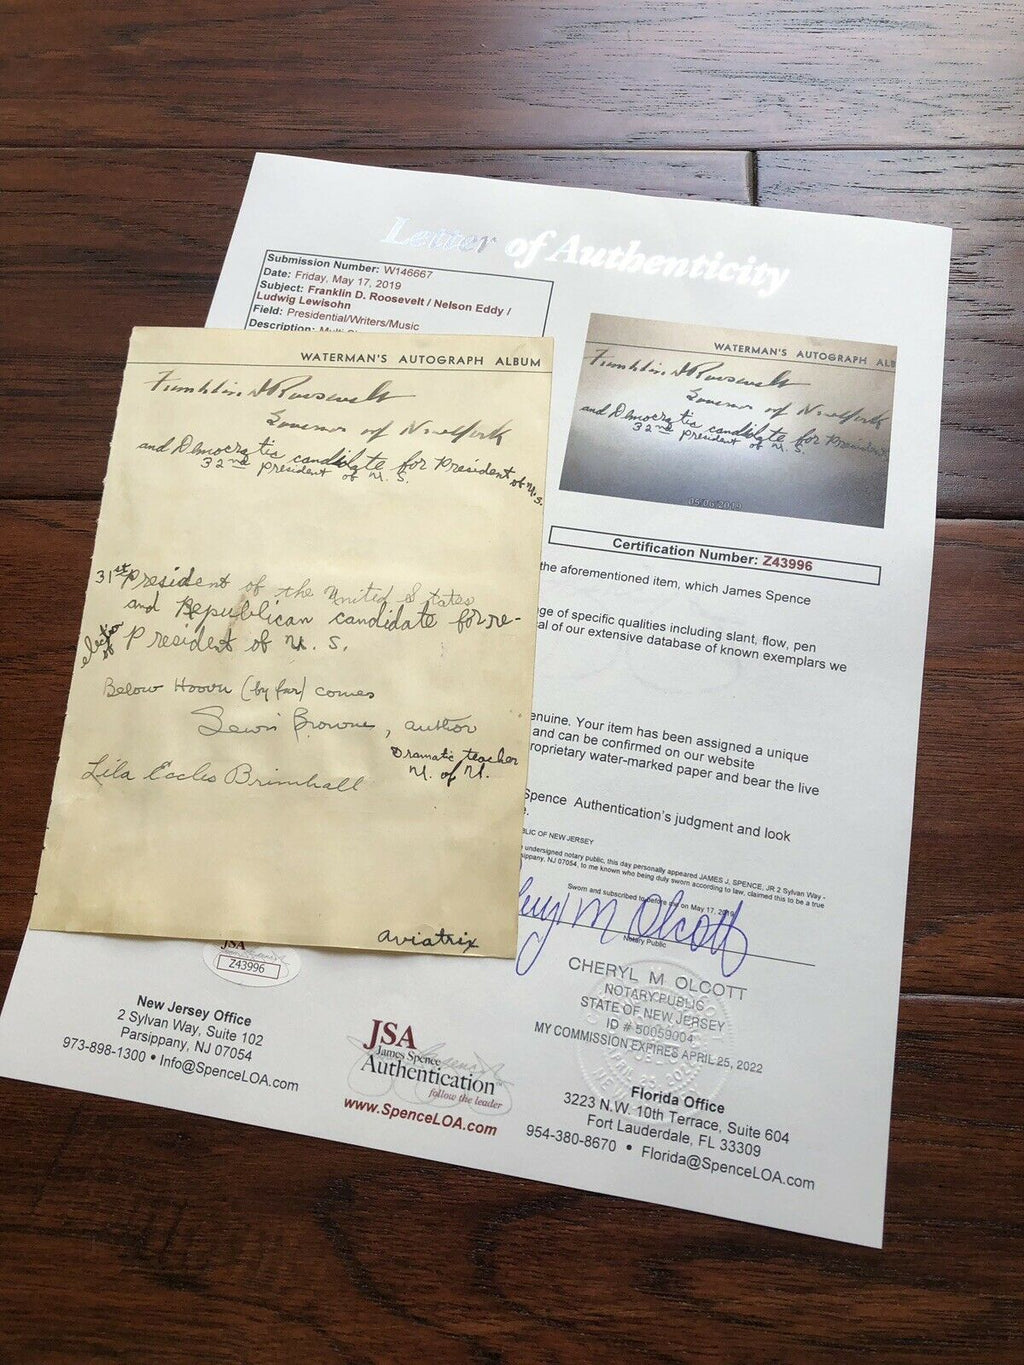 Letter of Authenticity
Submission Number: W146667
Date: Friday, May 17, 2019
Subject: Franklin D. Roosevelt / Nelson Eddy /
Ludwig Lewisohn
Field: Presidential/Writers/Music
Description:
WATERMAN'S AUTOGRAPH ALBUM
Franklin D Roosevelt
Governor of New York
and Democratic candidate for President of U.S.
32nd President of U. S.
31st President of the United States
and Republican candidate for re-
election of President of U. S.
Below Hoover (by far) comes
Lewis Browne, author
Dramatic teacher
U. of U.
Lila Eccles Brimhall
aviatrix
WATERMAN'S AUTOGRAPH ALB
Franklin D Roosevelt
Governor of New York
and Democratic candidate for President
32nd President of U. S.
05/06/2019
Certification Number: Z43996
the aforementioned item, which James Spence
ge of specific qualities including slant, flow, pen
al of our extensive database of known exemplars we
enuine. Your item has been assigned a unique
and can be confirmed on our website
roprietary water-marked paper and bear the live
Spence Authentication's judgment and look
e.
BLIC OF NEW JERSEY
undersigned notary public, this day personally appeared JAMES J. SPENCE, JR 2 Sylvan Way -
sippany, NJ 07054, to me known who being duly sworn according to law, claimed this to be a true
Sworn and subscribed to before me on May 17, 2019
M Olcott
Notary Public
CHERYL M OLCOTT
NOTARY PUBLIC
STATE OF NEW JERSEY
ID # 50059004
MY COMMISSION EXPIRES APRIL 25, 2022
JSA
Z43996
New Jersey Office
2 Sylvan Way, Suite 102
Parsippany, NJ 07054
973-898-1300 • Info@SpenceLOA.com
JSA
James Spence
Authentication
follow the leader
www.SpenceLOA.com
Florida Office
3223 N.W. 10th Terrace, Suite 604
Fort Lauderdale, FL 33309
954-380-8670 • Florida@SpenceLOA.com